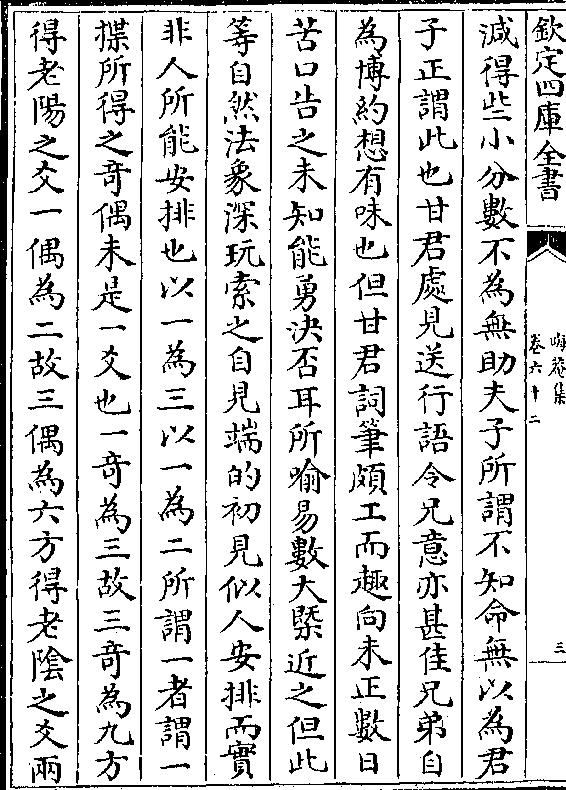 欽定四庫全書
晦菴集
卷六十二
三
減得些小分數不為無助夫子所謂不知命無以為君
子正謂此也甘君處見送行語令兄意亦甚佳兄弟自
為博約想有味也但甘君詞筆頗工而趣向未正數日
苦口告之未知能勇決否耳所喻易數大槩近之但此
等自然法象深玩索之自見端的初見似人安排而實
非人所能安排也以一為三以一為二所謂一者謂一
揲所得之奇偶未是一爻也一奇為三故三奇為九方
得老陽之爻一偶為二故三偶為六方得老陰之爻兩